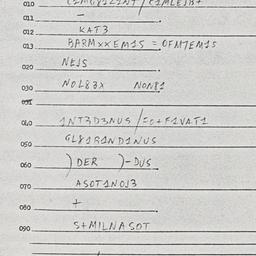 010
011 –
012 KAT3
013 BARMXXEM15 = OFM7EM15
020 NEJS
030 NOL83X NON81
031
040 1NT3D3NUS /=0+F1VAT1
050 GL81R1ND1NUS
060 ) DER )-DUS
070 ASOT1NOJ3
080 +
090 S+MILNASOT